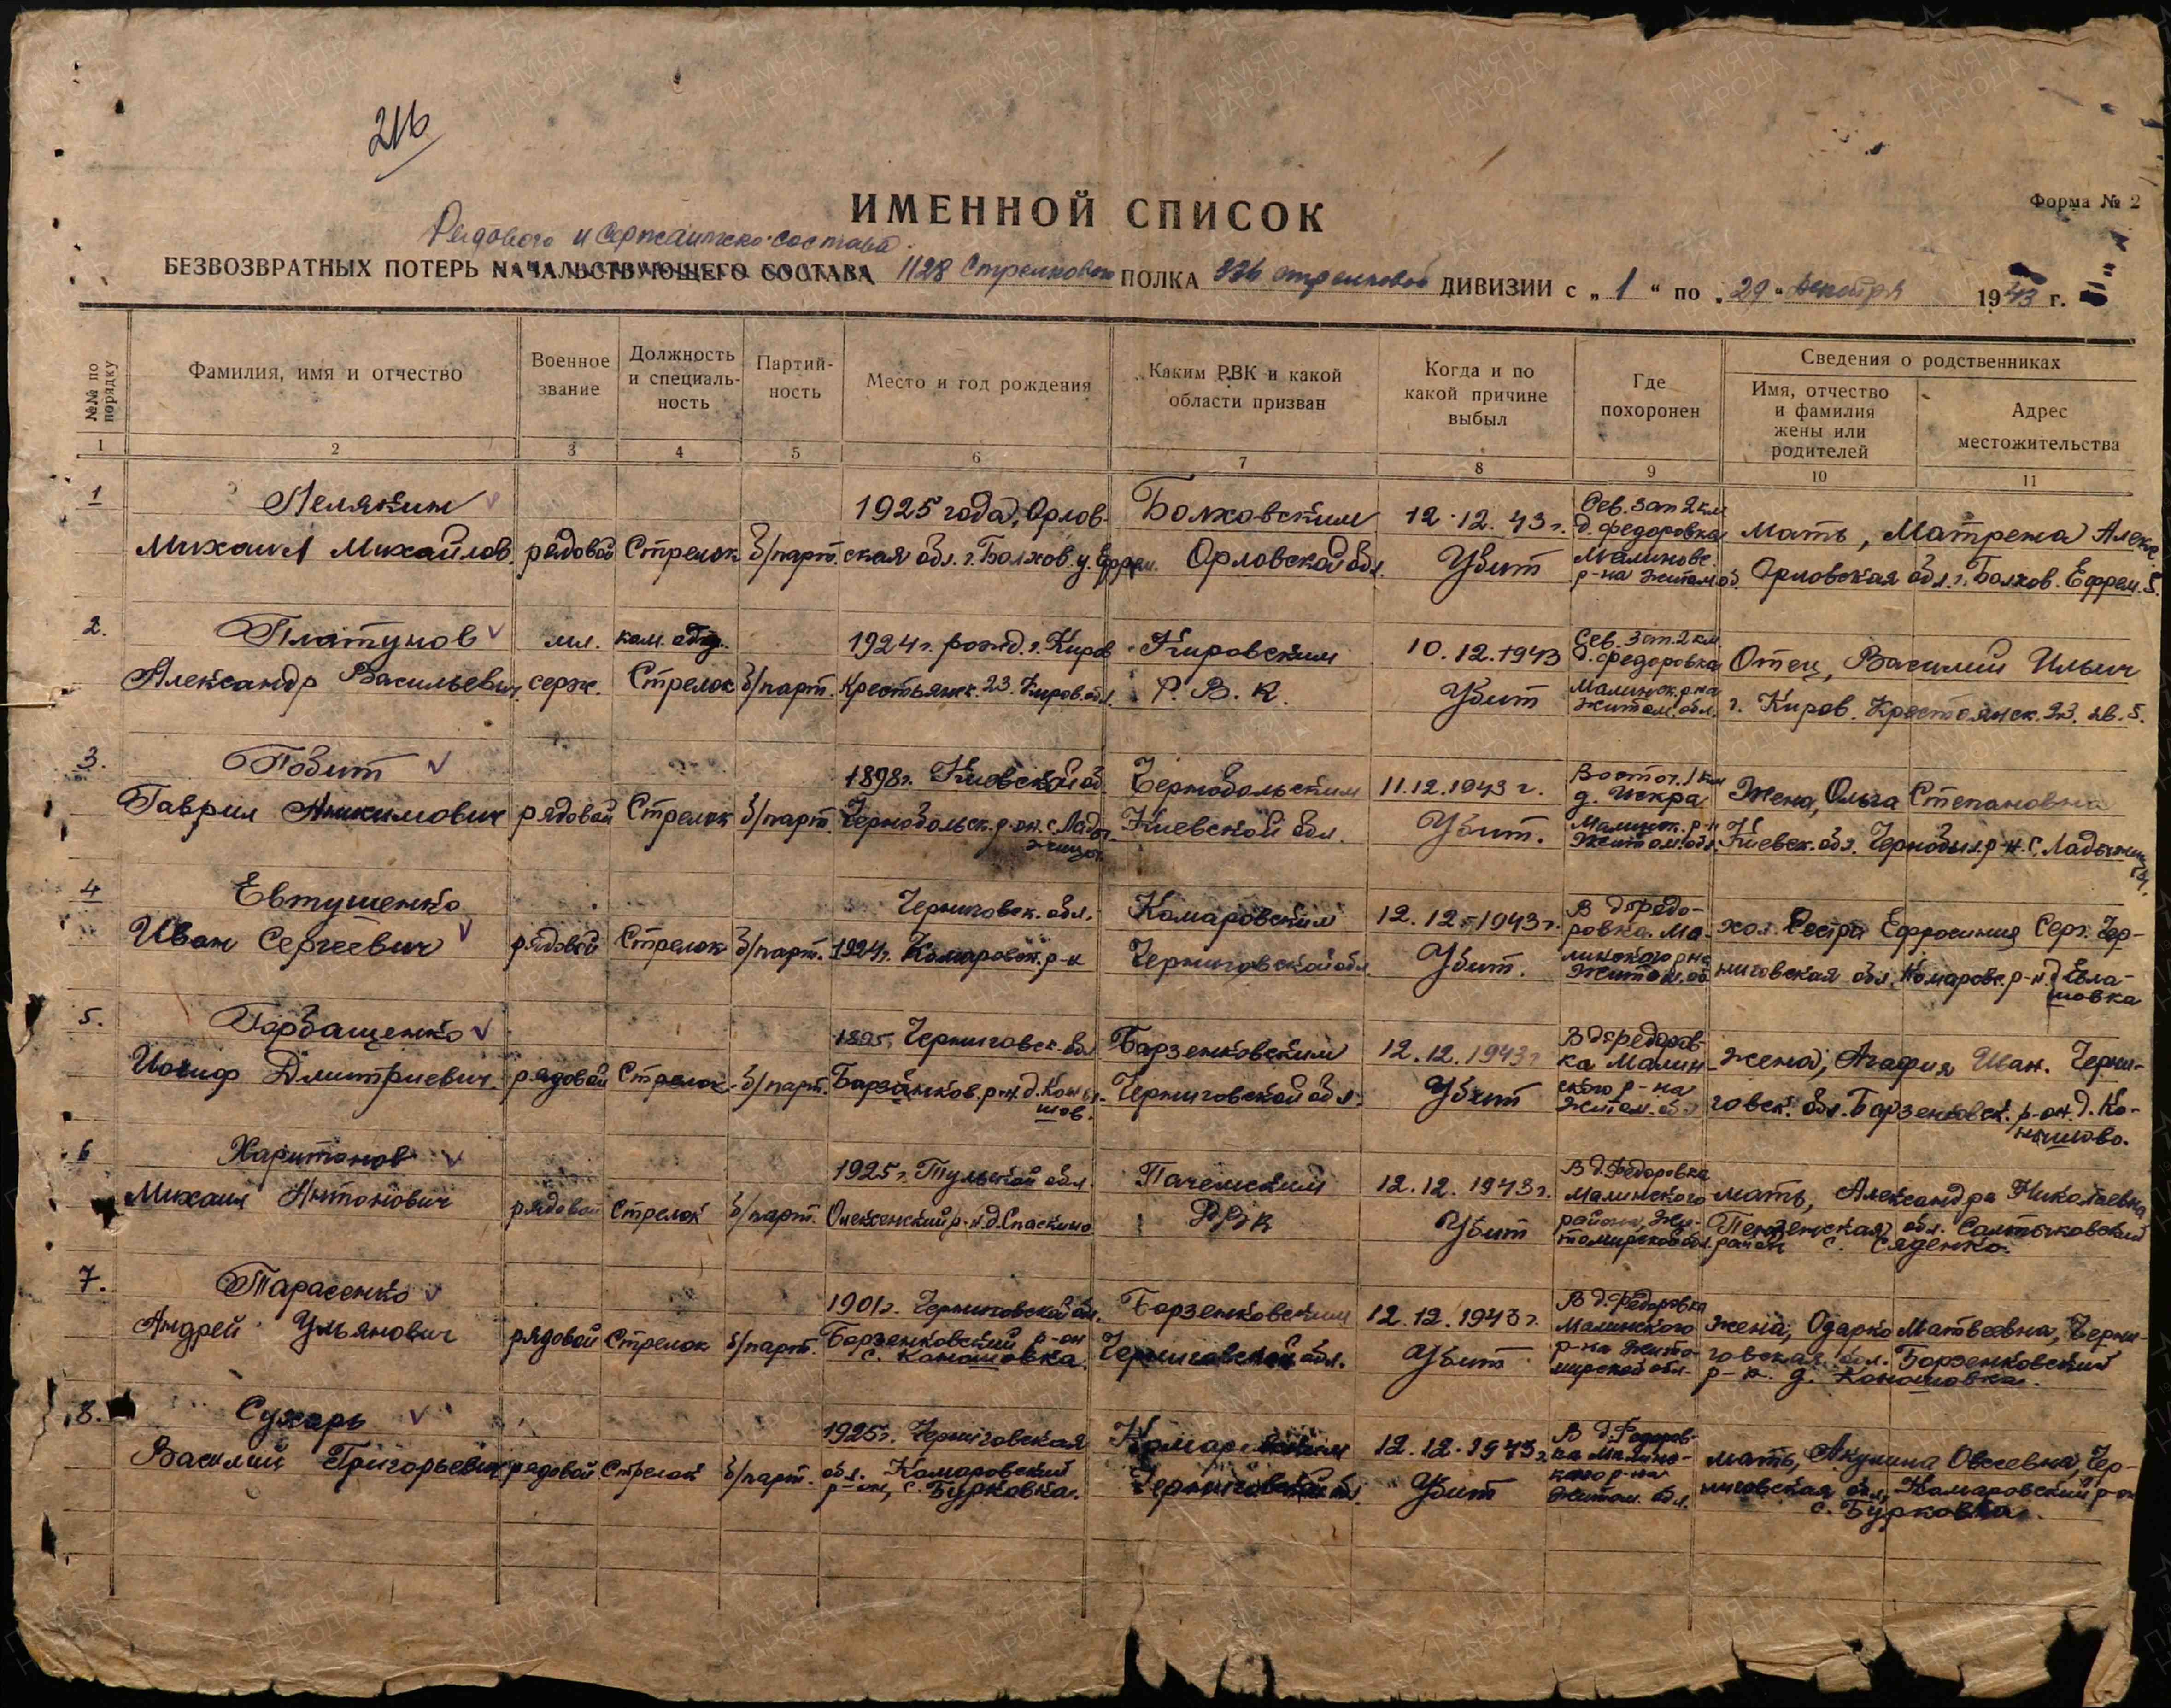 216
Форма № 2
ИМЕННОЙ СПИСОК
Рядового и сержантско-состава.
БЕЗВОЗВРАТНЫХ ПОТЕРЬ НАЧАЛЬСТВУЮЩЕГО СОСТАВА 1128 Стрелкового ПОЛКА 336 стрелковой ДИВИЗИИ с „ 1 “ по „ 29 “ декабря 1943 г.
№№ по порядку
Фамилия, имя и отчество
Военное звание
Должность и специаль- ность
Партий- ность
Место и год рождения
Каким РВК и какой области призван
Когда и по какой причине выбыл
Где похоронен
Сведения о родственниках
Имя, отчество и фамилия жены или родителей
Адрес местожительства
1 2 3 4 5 6 7 8 9 10 11
1 Лелякин 1925 года, Орлов- Болховским 12.12.43 г. Сев. зап 2 км д. Федоровка Мать, Матрена Алекс.
Михаил Михайлов. рядовой Стрелок б/парт. ская обл. г. Болхов. у. Орловской обл. Убит Малиновс. р-на Житом. об. Орловская обл. г. Болхов. Ефрем. 5.
2. Платунов мл. ком. отд. 1924 г. рожд. г. Киров Кировским 10.12.1943 Сев. Зап. 2 км. д. Федоровка Отец, Василий Ильич
Александр Васильевич. серж. Стрелок б/парт. Крестьянск. 23. Киров. обл. Р. В. К. Убит Малинск. р-на Житом. обл. г. Киров. Крестьянск. 23. кв. 5.
3. Побит 1898 г. Киевской об. Чернобольским 11.12.1943 г. Восточ. 1 км д. Искра Жена, Ольга Степановна
Гаврил рядовой Стрелок б/парт. Чернобольск. р-он. с. Лады- жичи Киевской обл. Убит. Малинск. р-н Житом. обл. Киевск. обл. Чернобыл. р-н. с.
4 Евтушенко Черниговск. обл. Комаровским 12.12.1943 г. В д. Федо- ровка. Ма- хол. Сестра Ефросиния Серг. Чер-
Иван Сергеевич рядовой Стрелок б/парт. 1924 г. Комаровск. р-н Черниговской обл. Убит. линского р-на Житом. об. ниговская обл. Комаровс. р-н. д. Евла- шовка
5. Горбащенко 1895. Черниговск. обл Барзенковским 12.12.1943 г В д. Федоров- ка Малин- жена, Агафия Иван. Черни-
Иосиф Дмитриевич. рядовой Стрелок. б/парт. Барзенков. р-н. д. Кон Черниговской обл. Убит ского р-на Житом. об. говск. обл. Барзенковск. р-он. д. Ко-
6 Харитонов 1925 г. Тульской обл. Пачемским 12.12.1943 г. В д. Федоровка Малинского мать, Александра Николаевна
Михаил Антонович рядовой Стрелок б/парт. р-н. д. Спаскино РВК Убит района, Жи- томирской обл. Пензенская обл. Салтыковский район с. Сяденко.
7. Тарасенко 1901 г. Черниговской обл. Барзенковским 12.12.1943 г. В д. Федоровка Малинского жена, Одарко Матвеевна, Черни-
Андрей Ульянович рядовой Стрелок б/парт. Барзенковский р-он с. Конашовка. Черниговской обл. Убит р-на Жито- мирской обл. говская обл. Барзенковский р-н. д. Конашовка.
8. Сухарь 1925 г. Черниговская 12.12.1943 г. В д. Федоров- ка Малинс- мать, Акулина Овсеевна, Чер-
Василий Григорьевич рядовой Стрелок б/парт. обл. Комаровский р-он, с. Бурковка. Убит кого р-на Житом. обл. ниговская обл, Комаровский р-он с. Бурковка.
ПАМЯТЬ НАРОДА